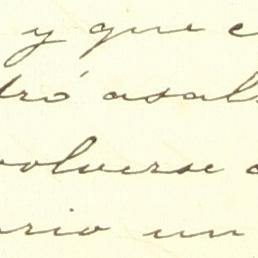 y que e
dró asal
volverse a
ario un